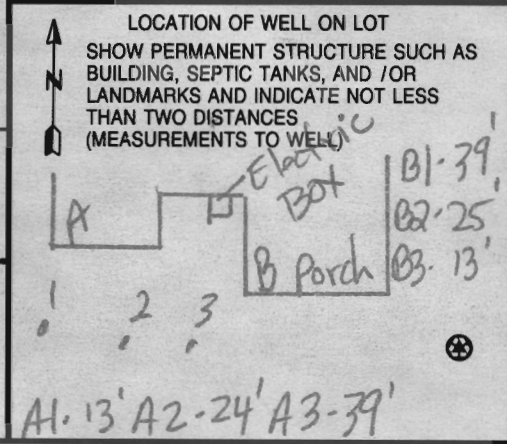 LOCATION OF WELL ON LOT
SHOW PERMANENT STRUCTURE SUCH AS
BUILDING, SEPTIC TANKS, AND /OR
LANDMARKS AND INDICATE NOT LESS
THAN TWO DISTANCES
(MEASUREMENTS TO WELL)
N
Electric
Box
A
B Porch
B1-39'
B2-25'
B3-13'
1
2
3
A1-13' A2-24' A3-39'